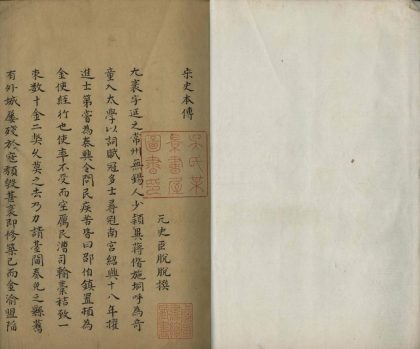 宋史本傳
元史臣脫脫撰
尤袤字延之常州無錫人少穎異蔣偕施坰呼為奇
童入太學以詞賦冠多士尋冠南宮紹興十八年擢
進士第嘗為泰興令問民疾苦皆曰邵伯鎮置頓為
金使經行也使率不受而空厲民漕司輸藁秸致一
束數十金二弊久莫之去乃力請臺閫奏免之縣舊
有外城屢殘於寇頹毀甚袤即修築已而金渝盟陷